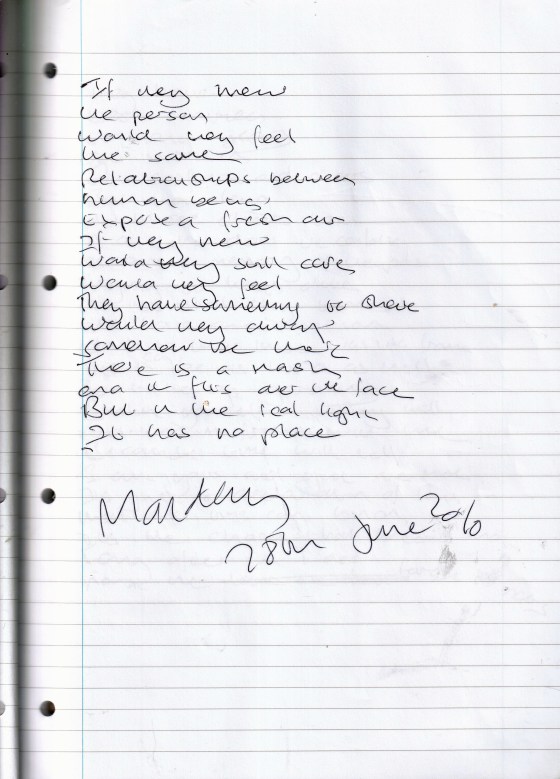 If they knew
the person
Would they feel
the same
Relationships between
human beings
Expose a fresh air
If they knew
Would they still care
Would they feel
They have something to share
Would they always
somehow be there
There is a mask
and it fits over the face
But in the real light
It has no place
28th June 2010